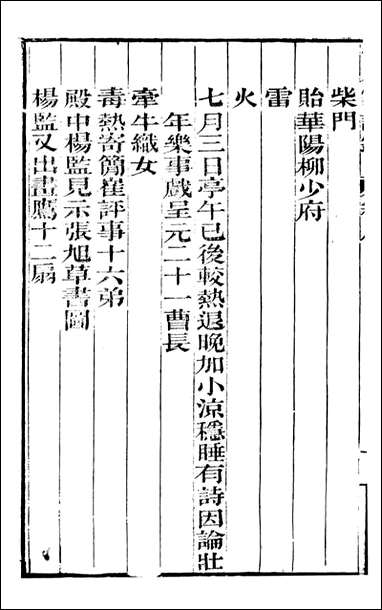 柴門
貽華陽柳少府
雷
火
七月三日亭午已後較熱退晚加小涼穩睡有詩因論壯
年樂事戲呈元二十一曹長
牽牛織女
毒熱寄簡崔評事十六弟
殿中楊監見示張旭草書圖
楊監又出畫鷹十二扇